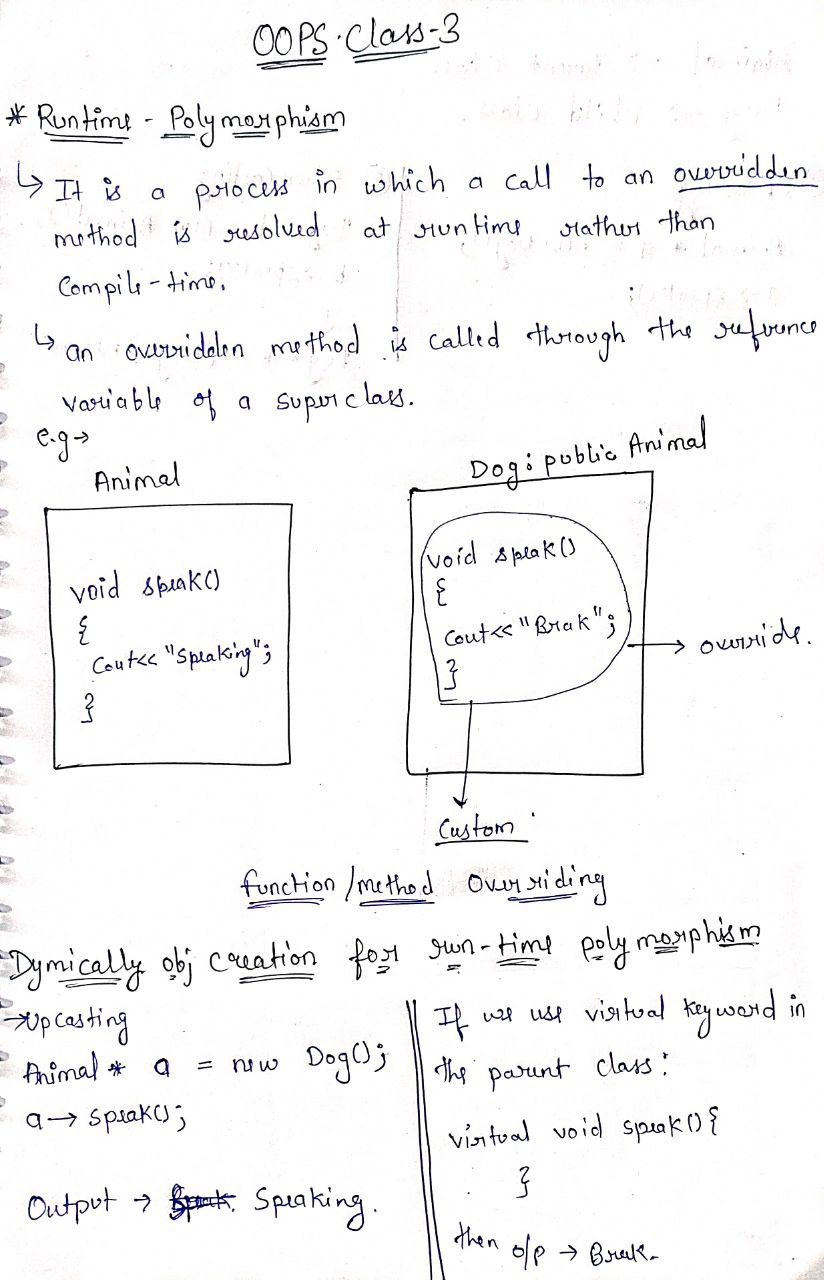 OOPS. Class-3
* Runtime - Polymorphism
↳ It is a process in which a call to an overridden
method is resolved at runtime rather than
Compile-time.
↳ an overridden method is called through the reference
variable of a superclass.
e.g →
Animal
void speak()
{
Cout<< "Speaking";
}
Dog: public Animal
void speak()
{
Cout<< "Brak";
}
→ override.
Custom
function/method Overriding
Dymically obj creation for run-time polymorphism
→ Upcasting
Animal * a = new Dog();
a → speak();
Output → Speaking.
If we use virtual keyword in
the parent class:
virtual void speak() {
}
then o/p → Brak.